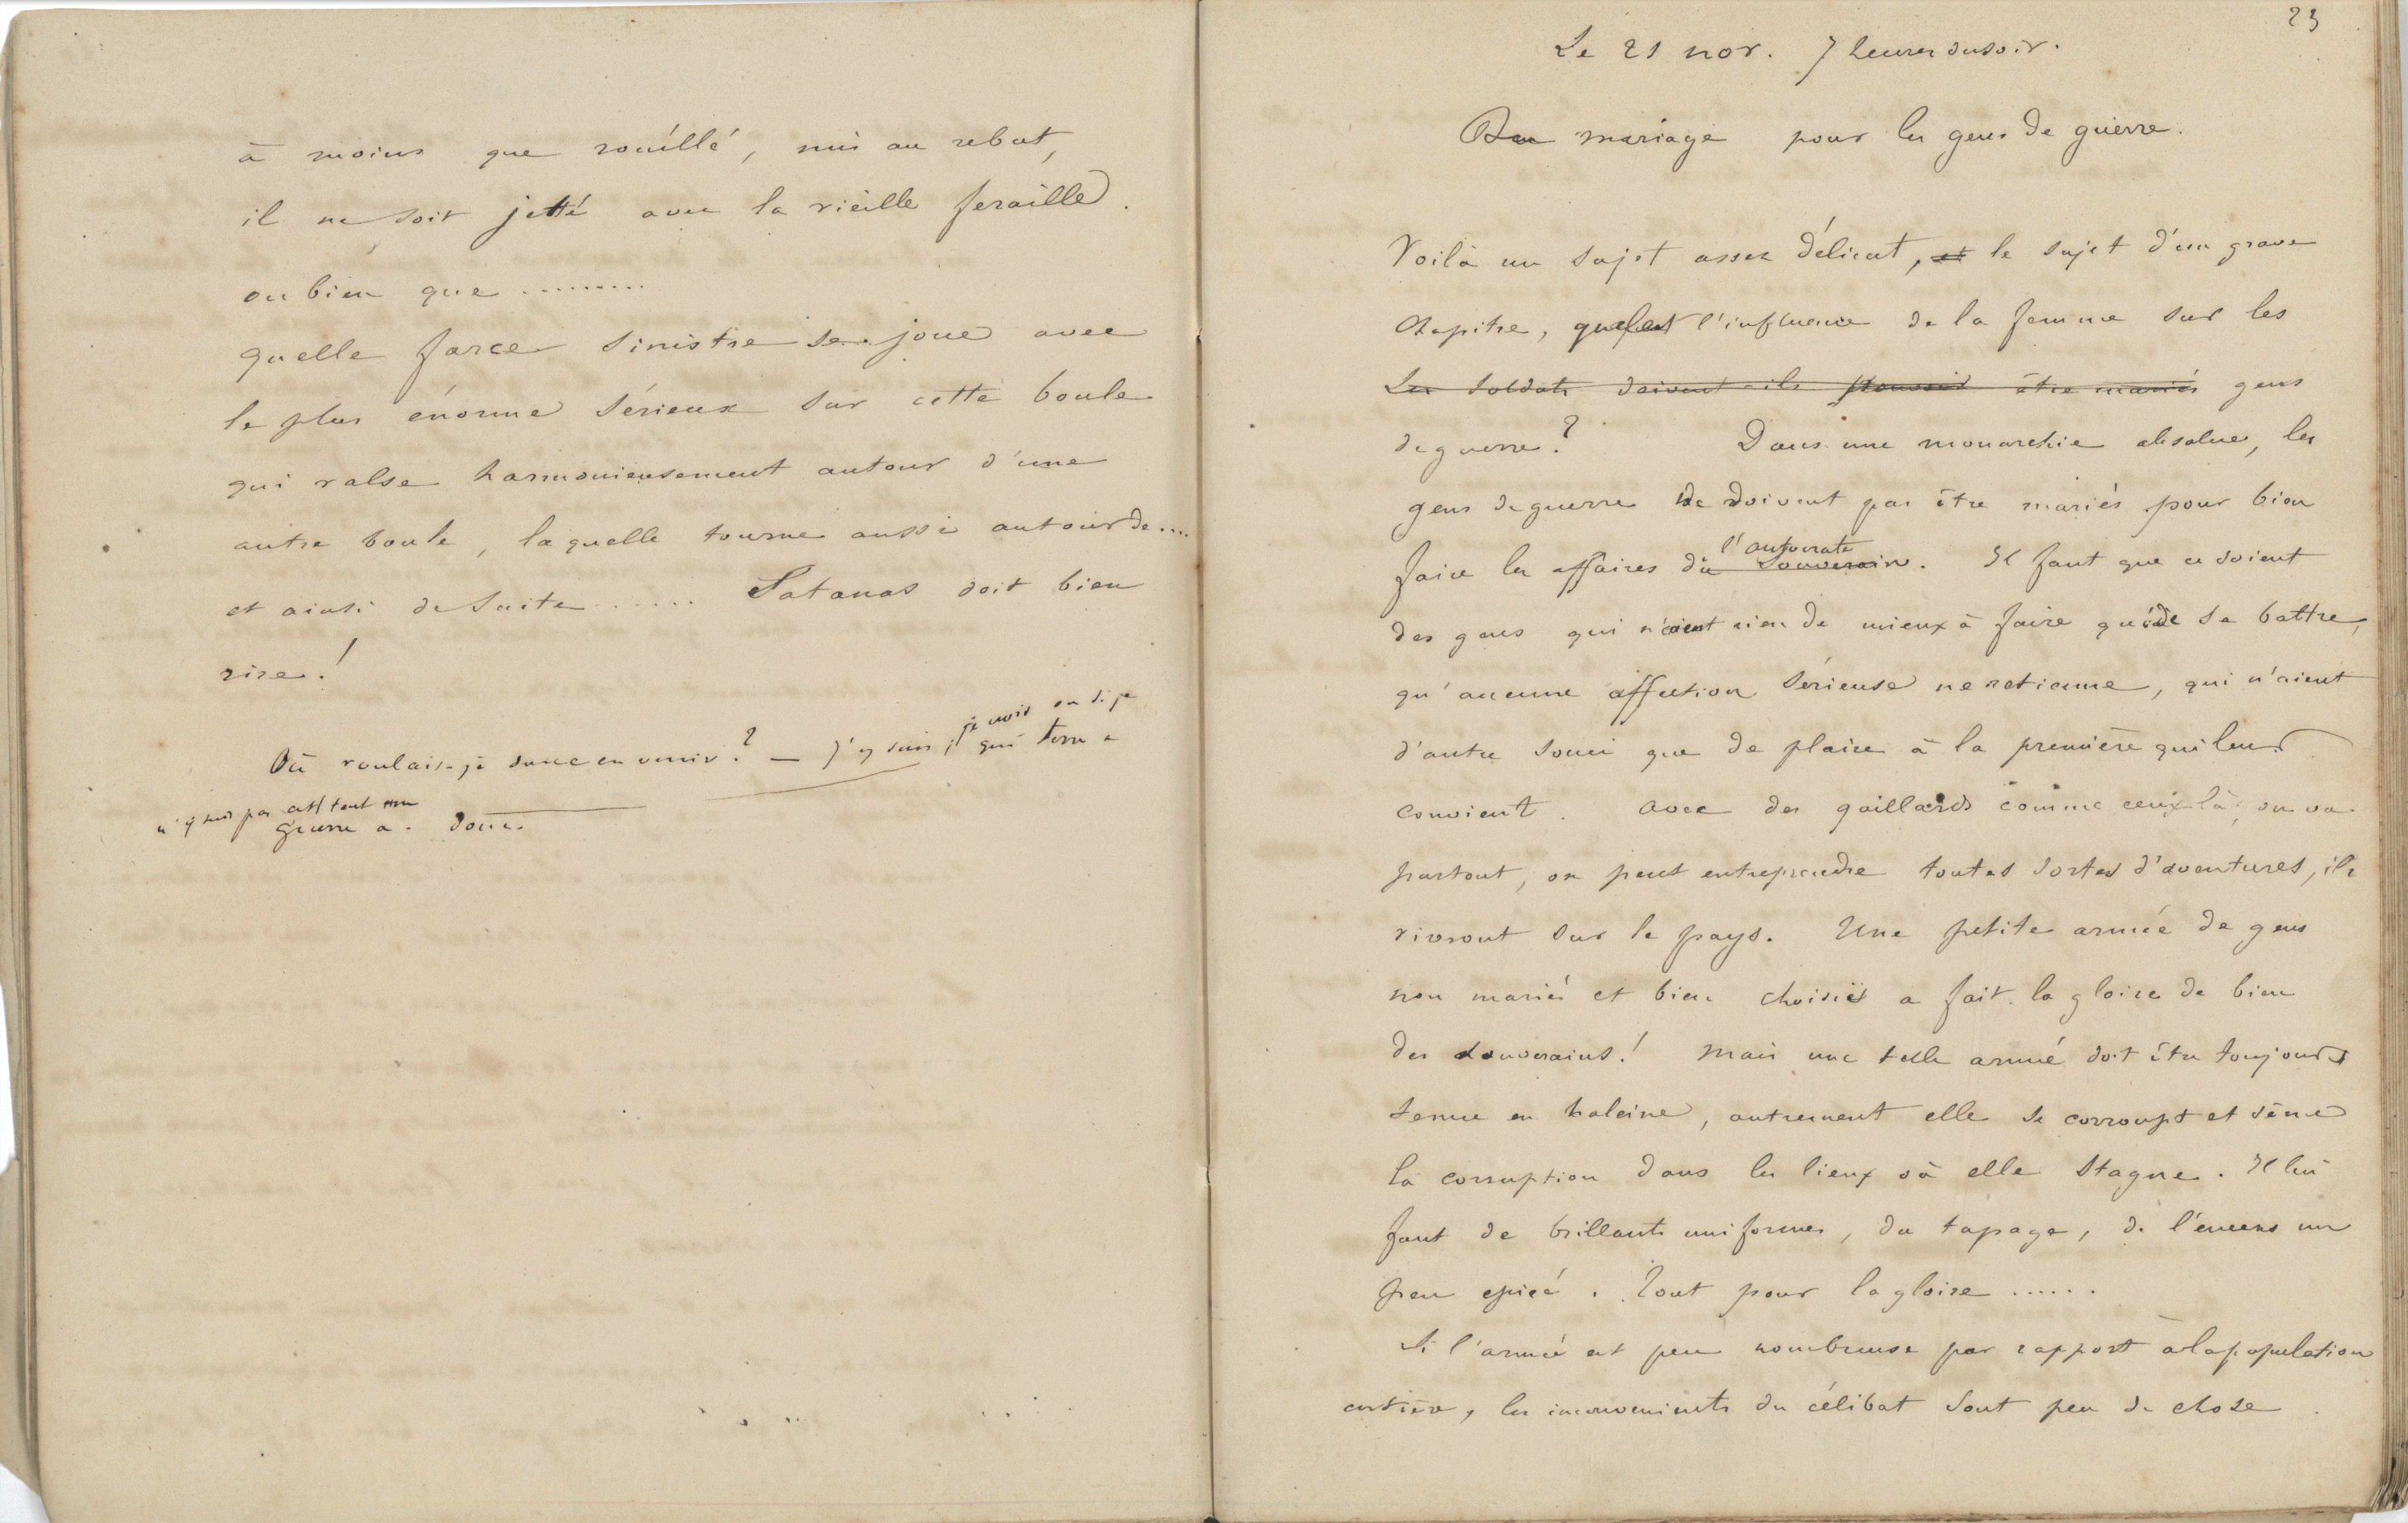 à moins que rouillé, mis au rebut,
il ne soit jetté avec la vieille feraille.
ou bien que .........
quelle farce sinistre se joue avec
le plus énorme sérieux sur cette boule
qui valse harmonieusement autour d'une
autre boule, laquelle tourne aussi autour de....
et ainsi de suite ...... Satanas doit bien
rire !
Où voulais-je donc en venir ? — j'y suis, je crois ou si je
n'y suis pas
23
Le 21 nov. 7 heures du soir.
Du mariage pour les gens de guerre.
Voilà un sujet assez délicat, et le sujet d'un grave
chapitre, quelest l'influence de la femme sur les
Les soldats doivent-ils pouvoir être mariés gens
de guerre ? Dans une monarchie absolue, les
gens de guerre ne doivent pas être mariés pour bien
faire les affaires du souverain l'autocrate. Il faut que ce soient
des gens qui n'aient rien de mieux à faire que de se battre,
qu'aucune affection sérieuse ne retienne, qui n'aient
d'autre souci que de plaire à la première qui leur
convient. avec des gaillards comme ceux là, on va
partout, on peut entreprendre toutes sortes d'aventures, ils
vivront sur le pays. Une petite armée de gens
non mariés et bien choisis a fait la gloire de bien
des souverains ! mais une telle armée doit être toujours
tenue en haleine, autrement elle se corrompt et sème
la corruption dans les lieux où elle stagne. Il lui
faut de brillants uniformes, du tapage, de l'encens un
peu epicé. Tout pour la gloire ......
Si l'armée est peu nombreuse par rapport à la population
entière, les inconvenients du célibat sont peu de chose